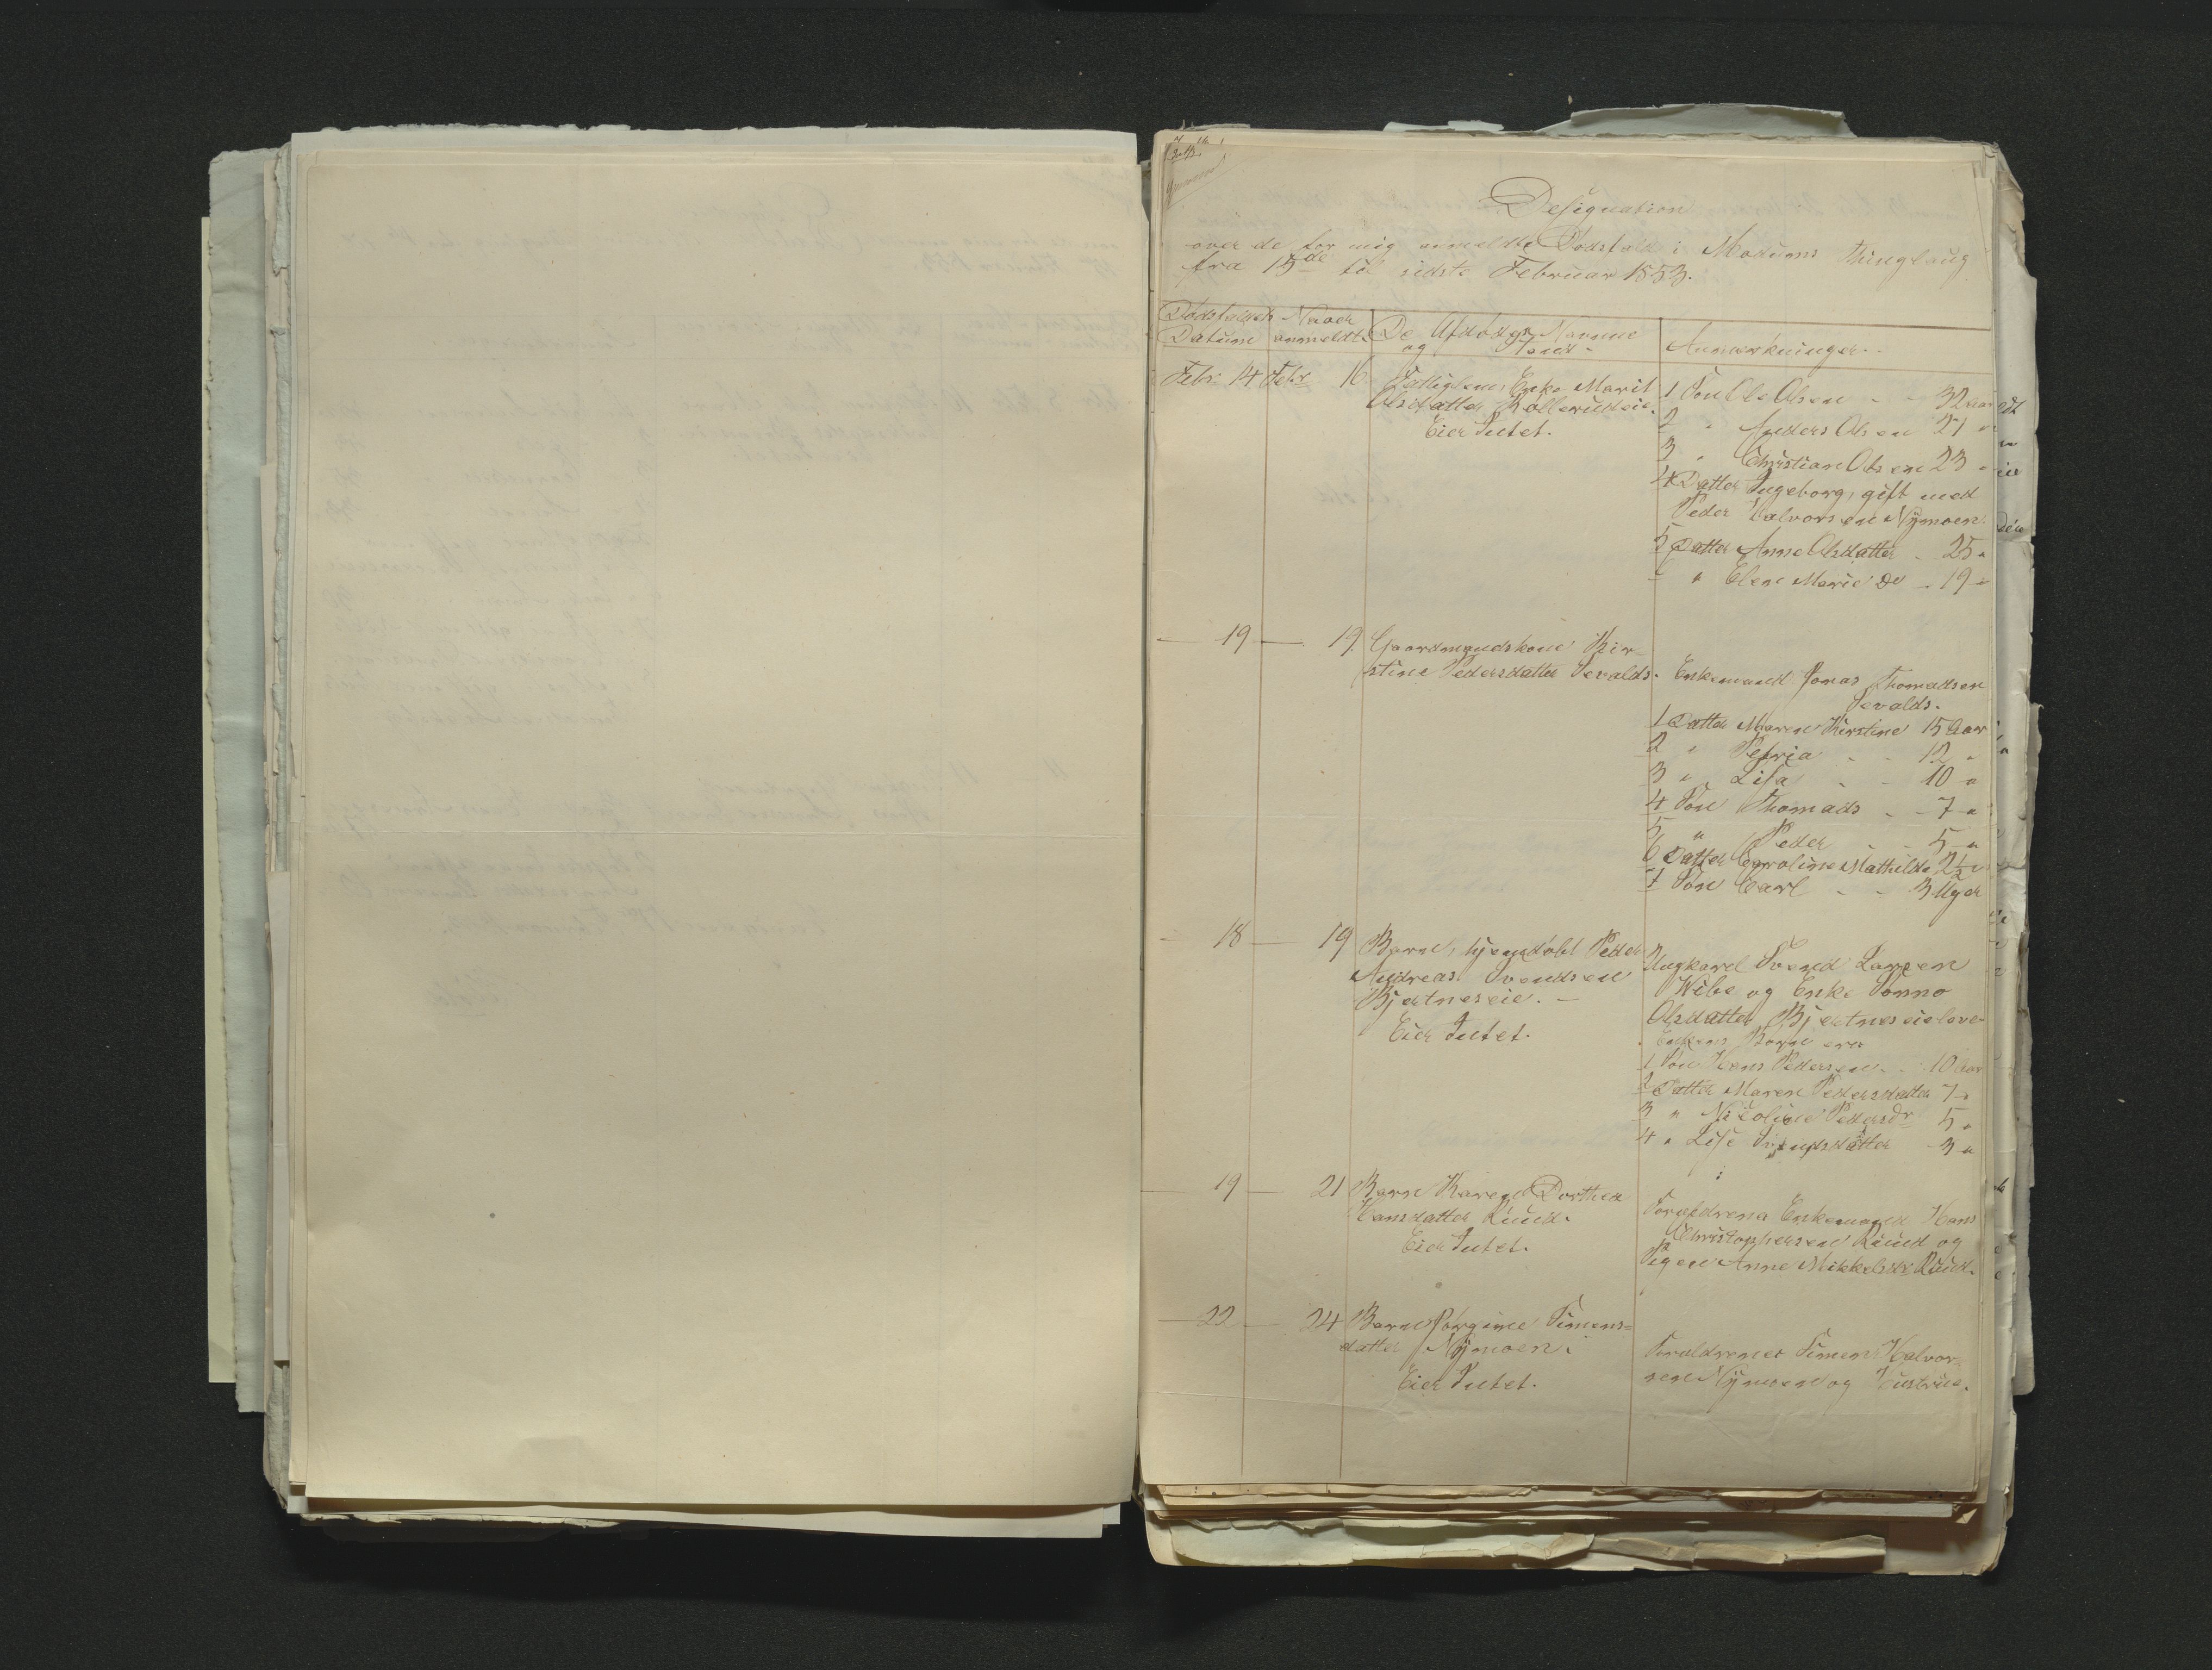 Designation
over de for mig anmeldte Dødsfald i Modums Thinglaug
fra 15de til sidste Februar 1853.
Dødsfaldets Datum
Naar anmeldt.
De Afdødes Navne og Stand.
Anmærkninger.
Febr 14 Febr 16
Fattiglem, Enke Marit
Olsdatter Kollerudeie.
Eier Intet.
1 Søn Ole Olsen - - 32 Aar
2 " Anders Olsen 27 "
3 " Christian Olsen 23 "
4 Datter Ingeborg, gift med
Peder Halvorsen Nÿmoen.
5 Datter Anne Olsdatter - 25 "
" Elen Marie Do - 19 "
— 19 — 19
Gaardmandskone Kir-
stine Pedersdatter Sevalds.
Enkemand Jonas Thomadsen
Sevalds.
1 Datter Maren Kirstine 15 Aar
2 " Petria - - 12 "
3 " Lisa - - 10 "
4 Søn Thomads - - 7 "
5 " Peder - - 5 "
6 Datter Caroline Mathilde 2½ "
7 Søn Carl - - 3 Uger
— 18 — 19
Barn, hjemdøbt Peder
Andreas Svendsen
Bjertneseie. —
Eier Intet.
Ungkarl Svend Larsen
Wibe og Enke
Olsdatter Bjertneseie
Enkens Børn ere
1 Søn Hans Pedersen - - 10 Aar
2 Datter Maren Pedersdatter 7 "
3 " Nicoline Pedersdr 5 "
4 " Lise Svendsdatter 3 "
— 19 — 21
Barn Karen Dorthea
Hansdatter Ruud.
Eier Intet.
Forældrene Enkemand Hans
Christophersen Ruud og
Pigen Anne Mikkelsdr Ruud.
— 22 — 24
Barn Jørgine Simens-
datter Nÿmoen.
Eier Intet.
Forældrene Simen Halvor-
sen Nÿmoen og Hustrue.